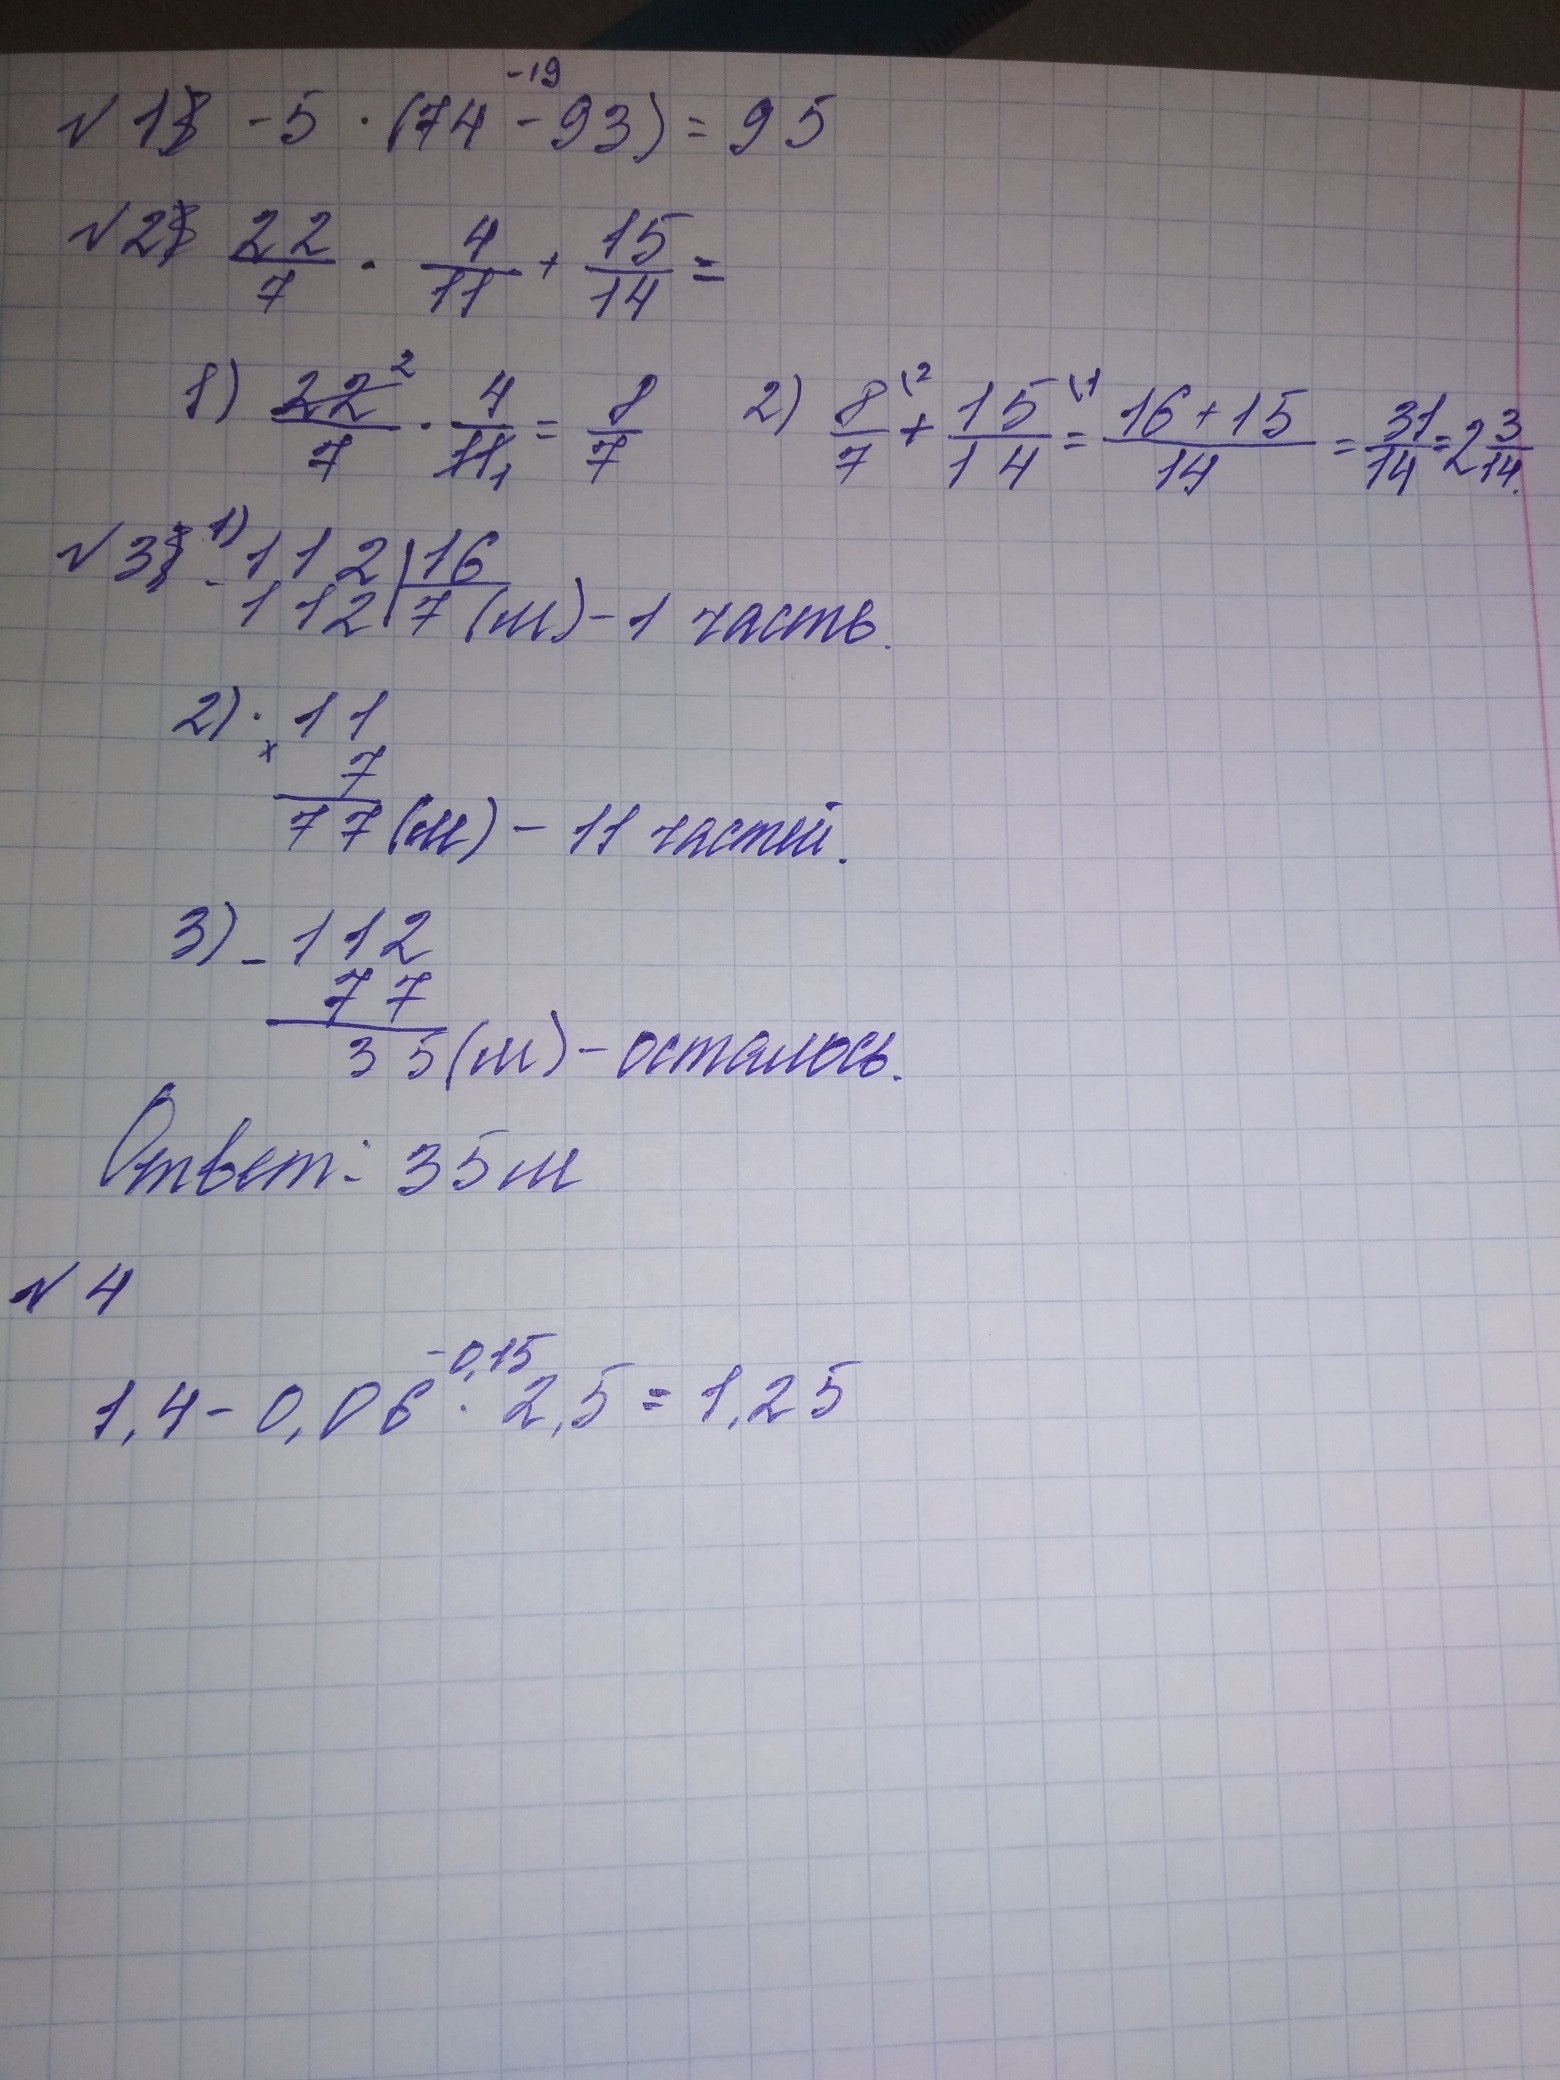 -19
№ 1 -5 · (74 - 93) = 95
№ 2 22/7 · 4/11 + 15/14 =
1) 22²/7 · 4/11₁ = 8/7 2) 8\²/7 + 15\¹/14 = 16+15/14 = 31/14 = 2 3/14.
№ 3 1) - 112 | 16
112 | 7 (м) - 1 часть.
2) · 11
× 7
77 (м) - 11 частей.
3) - 112
77
35 (м) - осталось.
Ответ: 35 м
№ 4
-0,15
1,4 - 0,06 · 2,5 = 1,25